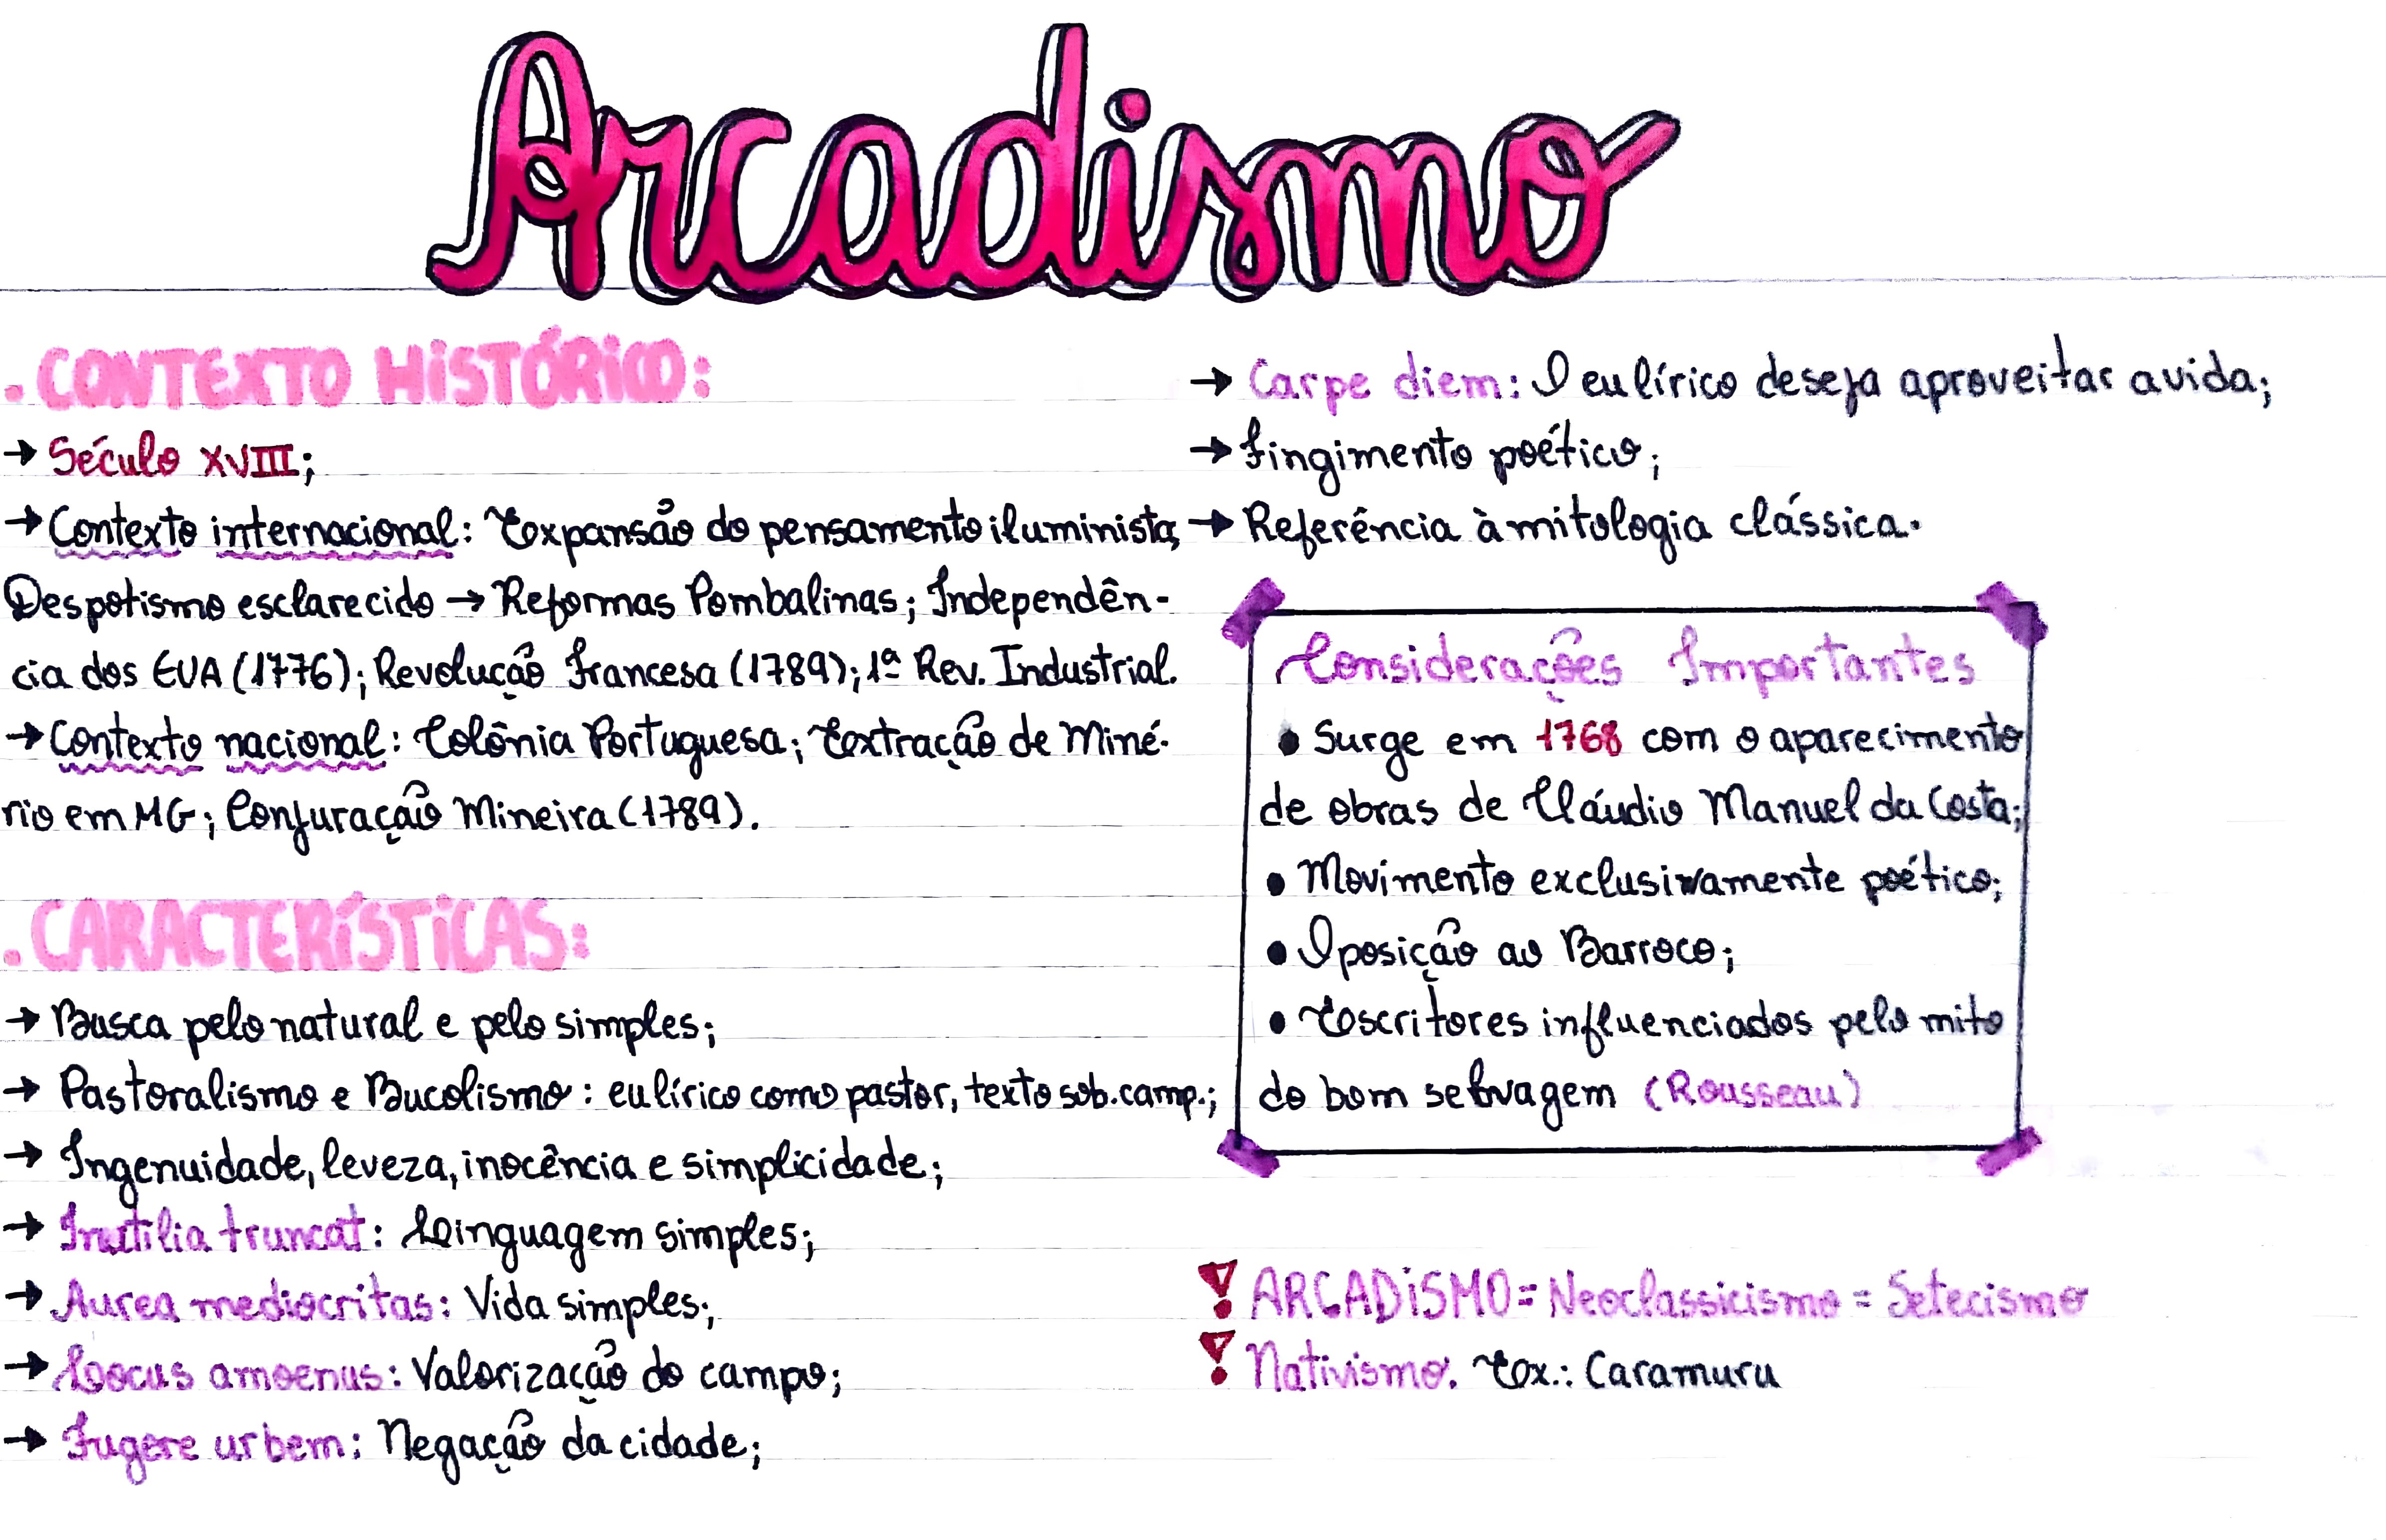 Arcadismo
. CONTEXTO HISTÓRICO:
→ Século XVIII;
→ Contexto internacional: Expansão do pensamento iluminista;
Despotismo esclarecido → Reformas Pombalinas; Independên-
cia dos EUA (1776); Revolução Francesa (1789); 1ª Rev. Industrial.
→ Contexto nacional: Colônia Portuguesa; Extração de Miné-
rio em MG; Conjuração Mineira (1789).
. CARACTERÍSTICAS:
→ Busca pelo natural e pelo simples;
→ Pastoralismo e Bucolismo: eu lírico como pastor, texto sob. camp.;
→ Ingenuidade, leveza, inocência e simplicidade;
→ Inutilia truncat: Linguagem simples;
→ Aurea mediocritas: Vida simples;
→ Locus amoenus: Valorização do campo;
→ Fugere urbem: Negação da cidade;
→ Carpe diem: O eu lírico deseja aproveitar a vida;
→ Fingimento poético;
→ Referência à mitologia clássica.
Considerações Importantes
• Surge em 1768 com o aparecimento
de obras de Cláudio Manuel da Costa;
• Movimento exclusivamente poético;
• Oposição ao Barroco;
• Escritores influenciados pelo mito
do bom selvagem (Rousseau)
! ARCADISMO = Neoclassicismo = Setecismo
! Nativismo. Ex.: Caramuru